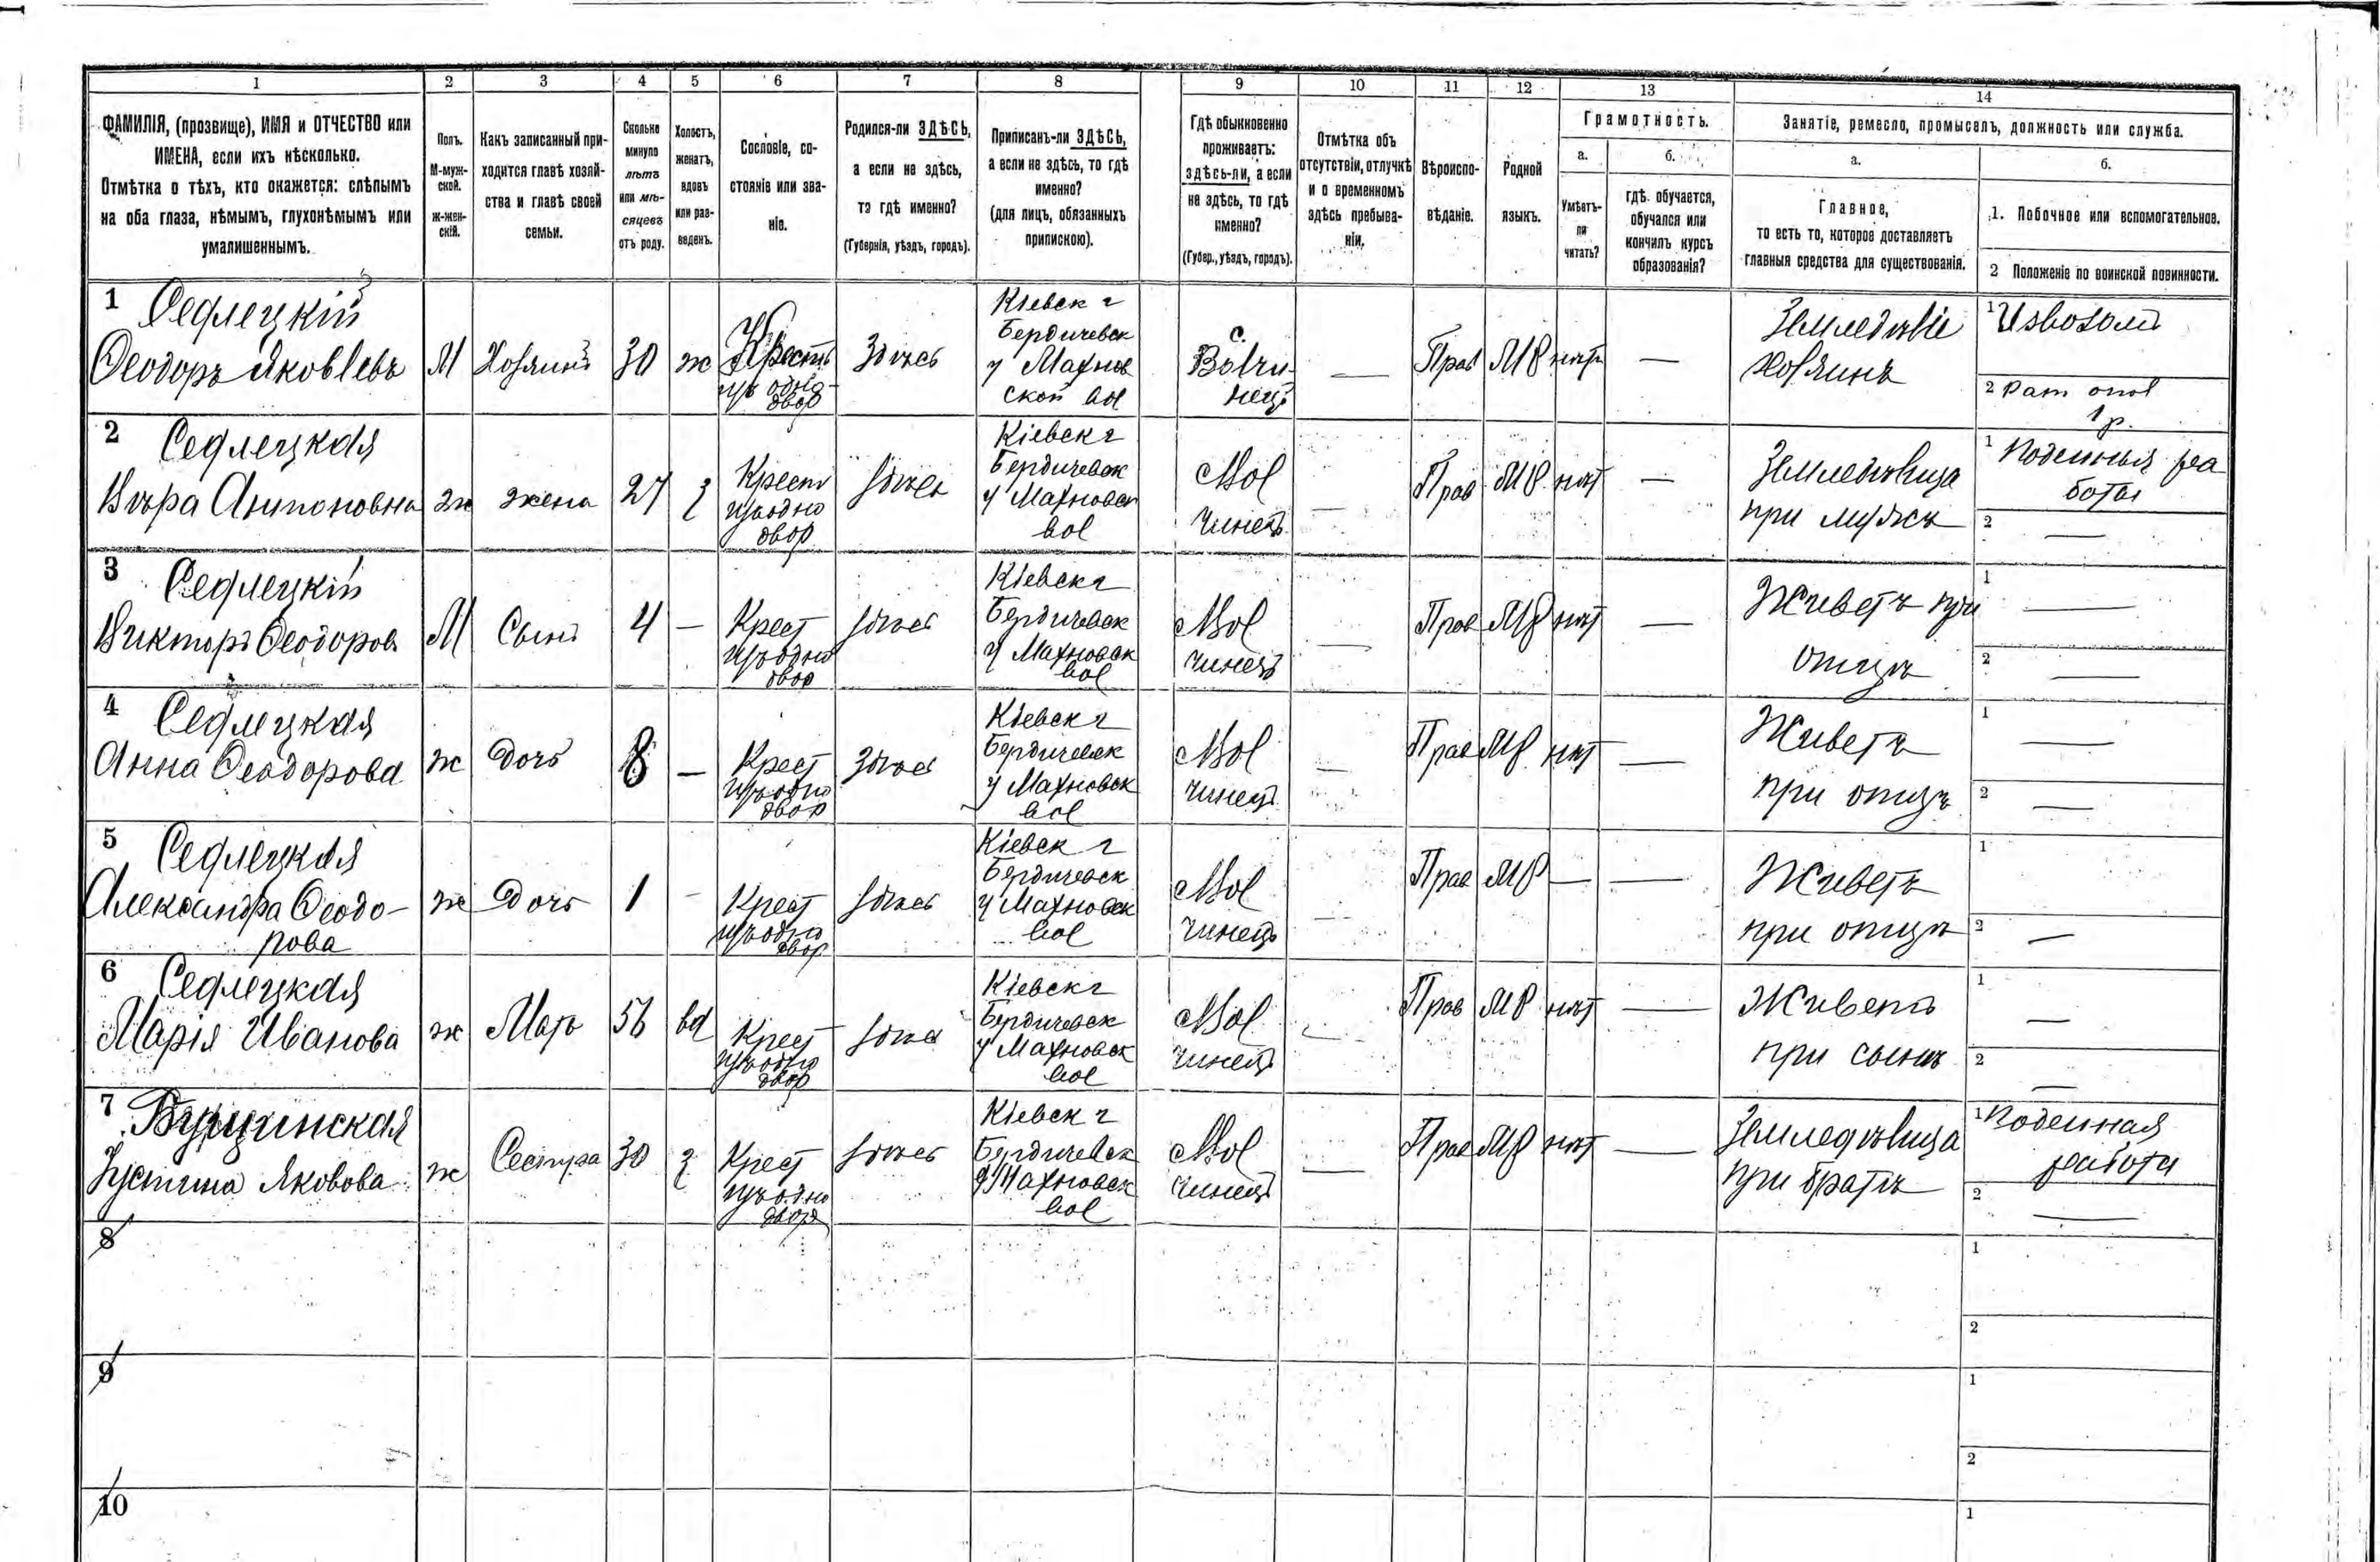 1 2 3 4 5 6 7 8 9 10 11 12 13 14
ФАМИЛІЯ, (прозвище), ИМЯ и ОТЧЕСТВО или
ИМЕНА, если ихъ нѣсколько.
Отмѣтка о тѣхъ, кто окажется: слѣпымъ
на оба глаза, нѣмымъ, глухонѣмымъ или
умалишеннымъ.
Полъ.
М-муж-
ской.
ж-жен-
скій.
Какъ записанный при-
ходится главѣ хозяй-
ства и главѣ своей
семьи.
Сколько
минуло
лѣтъ
или мѣ-
сяцевъ
отъ роду.
Холостъ,
женатъ,
вдовъ
или раз-
веденъ.
Сословіе, со-
стояніе или зва-
ніе.
Родился-ли ЗДѢСЬ,
а если не здѣсь,
то гдѣ именно?
(Губернія, уѣздъ, городъ).
Приписанъ-ли ЗДѢСЬ,
а если не здѣсь, то гдѣ
именно?
(для лицъ, обязанныхъ
припискою).
Гдѣ обыкновенно
проживаетъ:
здѣсь-ли, а если
не здѣсь, то гдѣ
именно?
(Губер., уѣздъ, городъ).
Отмѣтка объ
отсутствіи, отлучкѣ
и о временномъ
здѣсь пребыва-
ніи.
Вѣроиспо-
вѣданіе.
Родной
языкъ.
Грамотность.
а.
Умѣетъ-
ли
читать?
б.
гдѣ обучается,
обучался или
кончилъ курсъ
образованія?
Занятіе, ремесло, промыселъ, должность или служба.
а.
Главное,
то есть то, которое доставляетъ
главныя средства для существованія.
б.
1. Побочное или вспомогательное.
2 Положеніе по воинской повинности.
1 Седлецкій
Феодоръ Яковлевъ
М
Хозяинъ
30
ж
Крестъ
изъ одно-
двор
Здѣсь
Кіевск г
Бердичевск
у Махнов
ской вол
с.
—
Прав
МР
нѣтъ
—
Земледѣліе
хозяинъ
1 Извозомъ
2 Рат опол
1 р.
2 Седлецкая
Вѣра Антоновна
ж
жена
27
з
Крест
изъ одно
двор
Здѣсь
Кіевск г
Бердичевск
у Махновск
вол
Мол
чинецъ
—
Прав
МР
нѣт
—
Земледѣлица
при мужѣ
1 Поденныя ра
боты
2 —
3 Седлецкій
Викторъ Феодоров
М
Сынъ
4
—
Крест
изъ одно
двор
Здѣсь
Кіевск г
Бердичевск
у Махновск
вол
Мол
чинецъ
—
Прав
МР
нѣт
—
Живетъ при
отцѣ
1 —
2 —
4 Седлецкая
Анна Феодорова
ж
Дочь
8
—
Крест
изъ одно
двор
Здѣсь
Кіевск г
Бердичевск
у Махновск
вол
Мол
чинецъ
—
Прав
МР
нѣт
—
Живетъ
при отцѣ
1 —
2 —
5 Седлецкая
Александра Феодо-
рова
ж
Дочь
1
-
Крест
изъ одно
двор
Здѣсь
Кіевск г
Бердичевск
у Махновск
вол
Мол
чинецъ
—
Прав
МР
—
—
Живетъ
при отцѣ
1
2 —
6 Седлецкая
Марія Иванова
ж
Мать
56
вд
Крест
изъ одно
двор
Здѣсь
Кіевск г
Бердичевск
у Махновск
вол
Мол
чинецъ
—
Прав
МР
нѣт
—
Живетъ
при сынѣ
1 —
2 —
7
Устина Яковова
ж
Сестра
30
з
Крест
изъ одно
двор
Здѣсь
Кіевск г
Бердичевск
у Махновск
вол
Мол
чинецъ
—
Прав
МР
нѣт
—
Земледѣлица
при братѣ
1 Поденная
работа
2 —
8
1
2
9
1
2
10
1